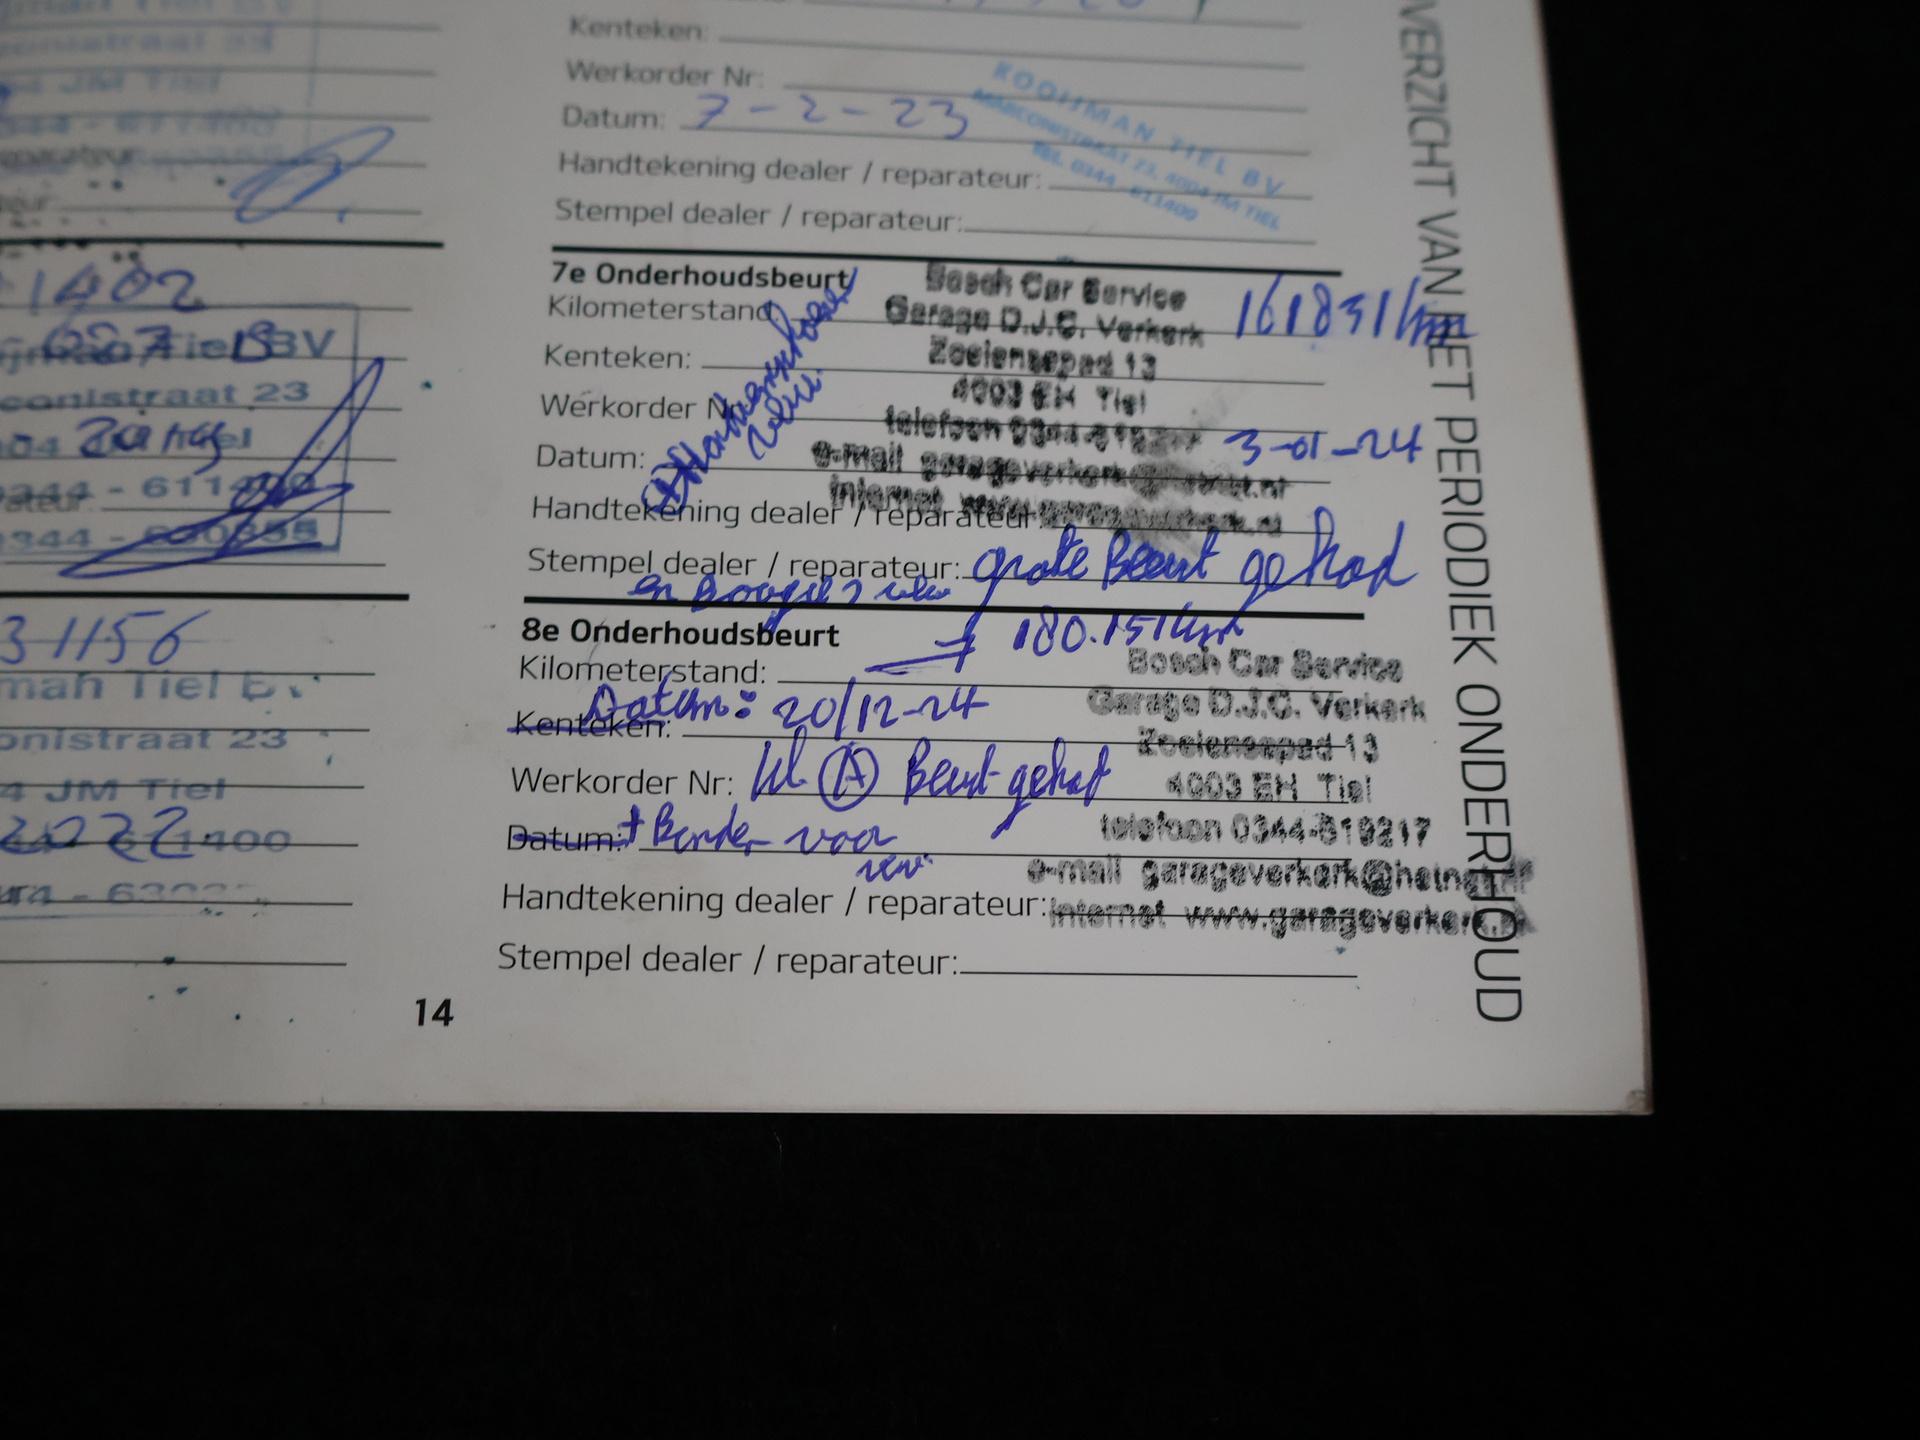 conistraat 23
JM Tiel
Kenteken:
Werkorder Nr:
Datum: 7-2-23
KOOIJMAN TIEL BV
MARCONISTRAAT 23, 4004 JM TIEL
TEL. 0344 - 611400
Handtekening dealer / reparateur:
Stempel dealer / reparateur:
1402
Tiel BV
conistraat 23
0344 - 611400
0344 - 630355
31156
man Tiel B.V.
onistraat 23
4 JM Tiel
2022
14
7e Onderhoudsbeurt
Kilometerstand: 161831 km
Kenteken:
Werkorder Nr:
Datum: 3-01-24
Handtekening dealer / reparateur:
Stempel dealer / reparateur: grote Beurt gehad
en Bougies
Bosch Car Service
Garage D.J.C. Verkerk
Zoelensepad 13
4003 EH Tiel
telefoon 0344-619217
e-mail garageverkerk@hetnet.nl
internet www.garageverkerk.nl
8e Onderhoudsbeurt
Kilometerstand: → 180.151 km
Datum: 20/12-24
Kenteken:
Werkorder Nr: kl (A) Beurt gehad
Datum: + Banden voor
Handtekening dealer / reparateur:
Stempel dealer / reparateur:
Bosch Car Service
Garage D.J.C. Verkerk
Zoelensepad 13
4003 EH Tiel
telefoon 0344-619217
e-mail garageverkerk@hetnet.nl
internet www.garageverkerk.nl
OVERZICHT VAN HET PERIODIEK ONDERHOUD